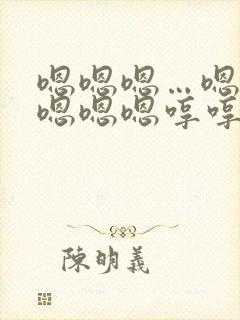 嗯嗯嗯…嗯
嗯嗯嗯哼哼
陳明義